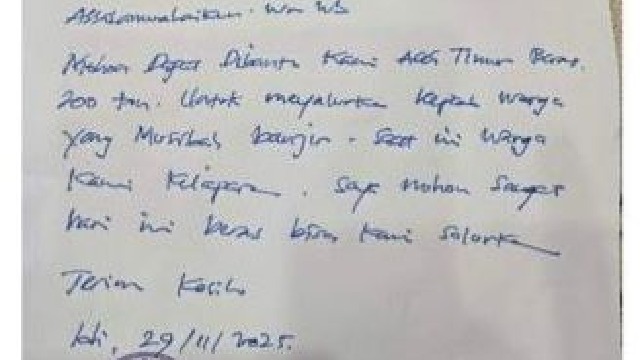 Assalamualaikum. Wr Wb
Mohon Dapat Dibantu Kami Aceh Timur Beras.
200 ton. Untuk menyalurkan Kepada Warga
yang Musibah banjir. Saat ini Warga
Kami Kelaparan. Saya Mohon Sangat
hari ini beras bisa Kami Salurkan
Terima Kasih
Idi, 29/11/2025.